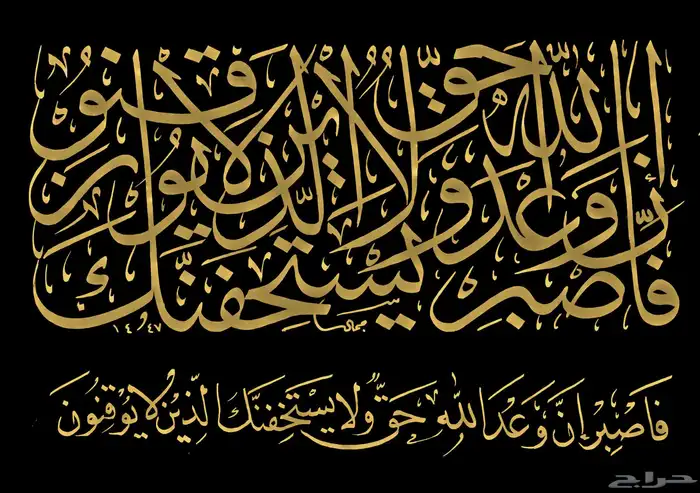 فَاصْبِرْ إِنَّ وَعْدَ اللَّهِ حَقٌّ وَلَا يَسْتَخِفَّنَّكَ الَّذِينَ لَا يُوقِنُونَ
فَاصْبِرْ إِنَّ وَعْدَ اللَّهِ حَقٌّ وَلَا يَسْتَخِفَّنَّكَ الَّذِينَ لَا يُوقِنُونَ
حراج